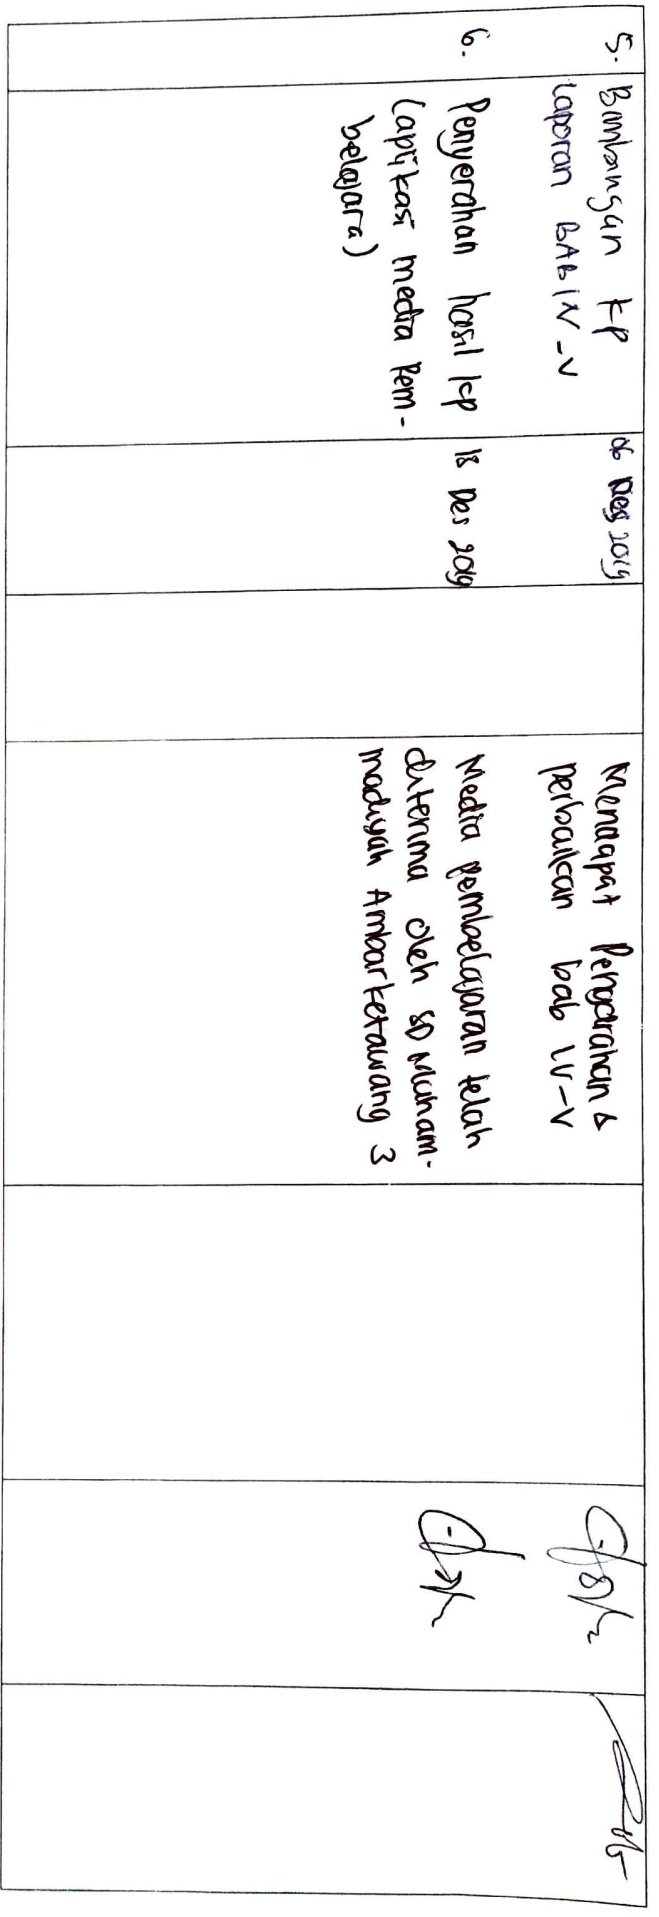 5. Bimbingan KP
Laporan BAB IV-V
06 Des 2019
Mendapat Pengarahan &
perbaikan bab IV-V
6. Penyerahan hasil kp
(aplikasi media Pem-
belajara)
18 Des 2019
Media pembelajaran telah
diterima oleh SD Muham-
madiyah Ambarketawang 3